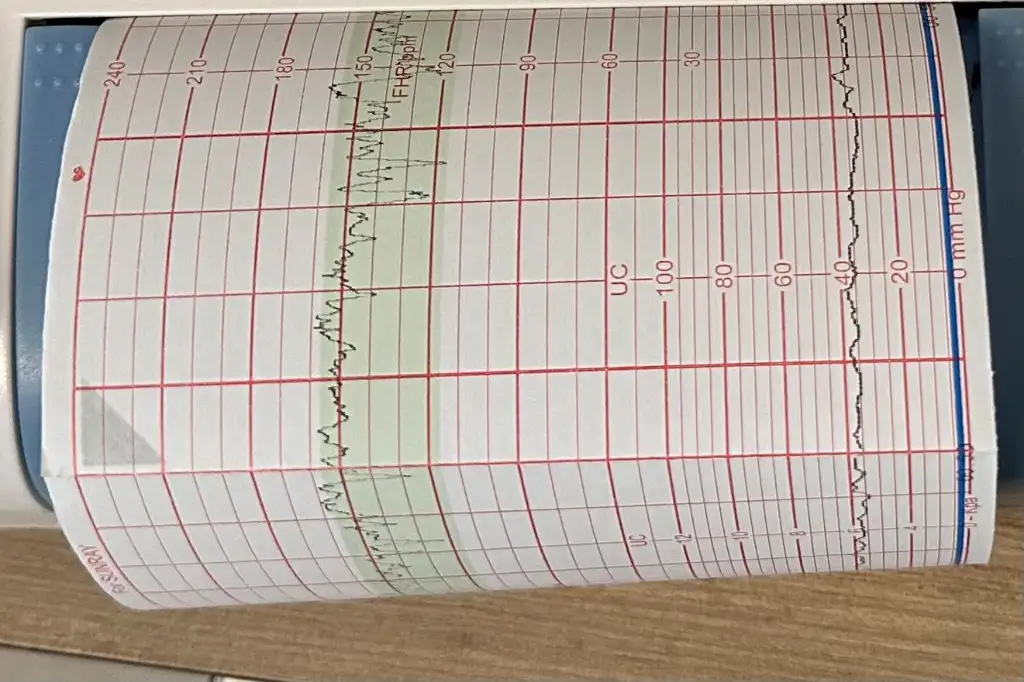 240
210
180
150
120
90
60
30
FHR bpm
UC
100
80
60
40
20
0 mm Hg
UC
12
10
8
4
SUNRAY